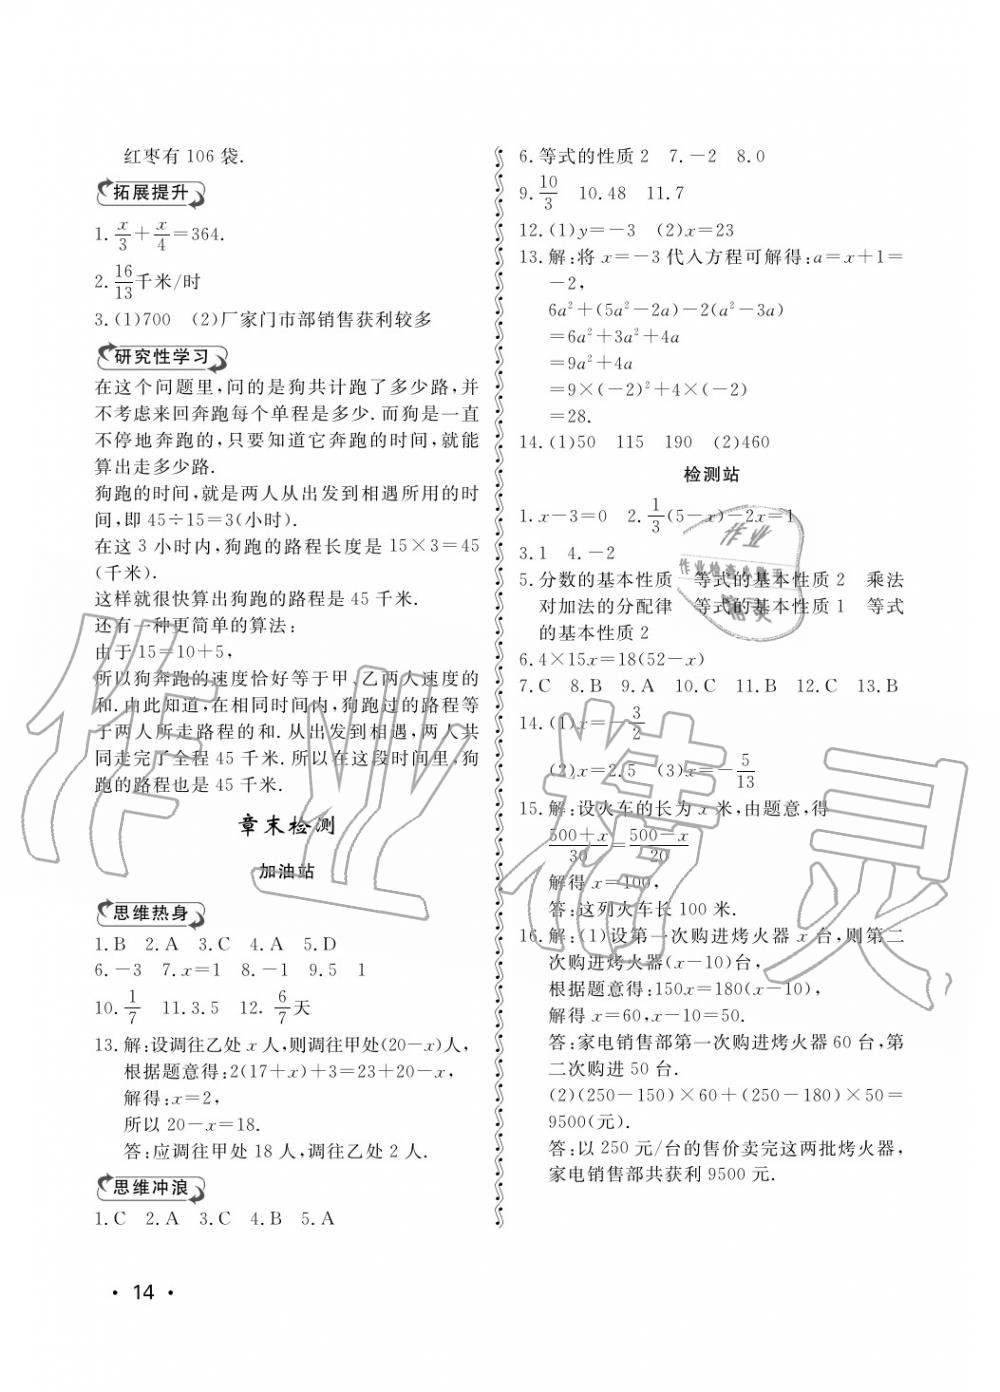 红枣有 106 袋.
拓展提升
1. x/3 + x/4 = 364.
2. 16/13 千米/时
3. (1)700 (2)厂家门市部销售获利较多
研究性学习
在这个问题里,问的是狗共计跑了多少路,并
不考虑来回奔跑每个单程是多少.而狗是一直
不停地奔跑的,只要知道它奔跑的时间,就能
算出走多少路.
狗跑的时间,就是两人从出发到相遇所用的时
间,即 45÷15=3(小时).
在这 3 小时内,狗跑的路程长度是 15×3=45
(千米).
这样就很快算出狗跑的路程是 45 千米.
还有一种更简单的算法:
由于 15=10+5,
所以狗奔跑的速度恰好等于甲、乙两人速度的
和.由此知道,在相同时间内,狗跑过的路程等
于两人所走路程的和.从出发到相遇,两人共
同走完了全程 45 千米.所以在这段时间里,狗
跑的路程也是 45 千米.
章末检测
加油站
思维热身
1. B 2. A 3. C 4. A 5. D
6. -3 7. x=1 8. -1 9. 5 1
10. 1/7 11. 3.5 12. 6/7 天
13. 解:设调往乙处 x 人,则调往甲处(20-x)人,
根据题意得:2(17+x)+3=23+20-x,
解得:x=2,
所以 20-x=18.
答:应调往甲处 18 人,调往乙处 2 人.
思维冲浪
1. C 2. A 3. C 4. B 5. A
6. 等式的性质 2 7. -2 8. 0
9. 10/3 10. 48 11. 7
12. (1)y=-3 (2)x=23
13. 解:将 x=-3 代入方程可解得:a=x+1=
-2,
6a²+(5a²-2a)-2(a²-3a)
=6a²+3a²+4a
=9a²+4a
=9×(-2)²+4×(-2)
=28.
14. (1)50 115 190 (2)460
检测站
1. x-3=0 2. 1/3(5-x)-2x=1
3. 1 4. -2
5. 分数的基本性质 等式的基本性质 2 乘法
对加法的分配律 等式的基本性质 1 等式
的基本性质 2
6. 4×15x=18(52-x)
7. C 8. B 9. A 10. C 11. B 12. C 13. B
14. (1)x=-3/2
(2)x=2.5 (3)x=-5/13
15. 解:设火车的长为 x 米,由题意,得
(500+x)/30=(500-x)/20
解得 x=100,
答:这列火车长 100 米.
16. 解:(1)设第一次购进烤火器 x 台,则第二
次购进烤火器(x-10)台,
根据题意得:150x=180(x-10),
解得 x=60,x-10=50.
答:家电销售部第一次购进烤火器 60 台,第
二次购进 50 台.
(2)(250-150)×60+(250-180)×50=
9500(元).
答:以 250 元/台的售价卖完这两批烤火器,
家电销售部共获利 9500 元.
作业精灵
作业
作业检查小助手
精灵
· 14 ·